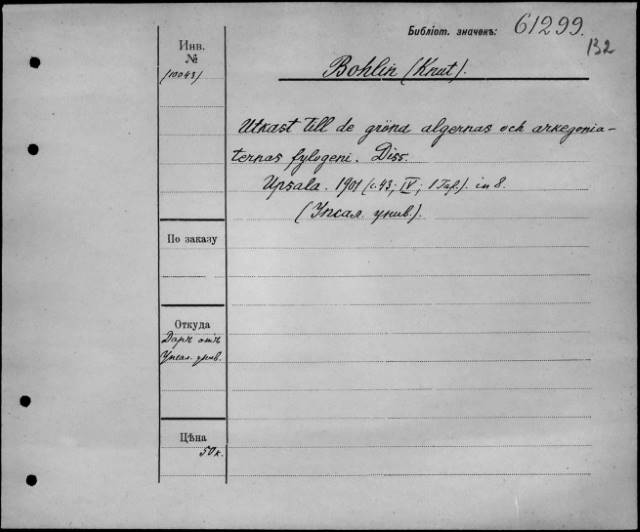 Библіот. значекъ: 61299
132
Инв.
№
(10043)
Bohlin (Knut).
Utkast till de gröna algernas och arkegonia-
ternas fylogeni. Diss.
Upsala. 1901 (c. 43; IV; 1 Taf.). in 8.
(Упсал. унив.).
По заказу
Откуда
Даръ отъ
Упсал. унив.
Цѣна
50 к.